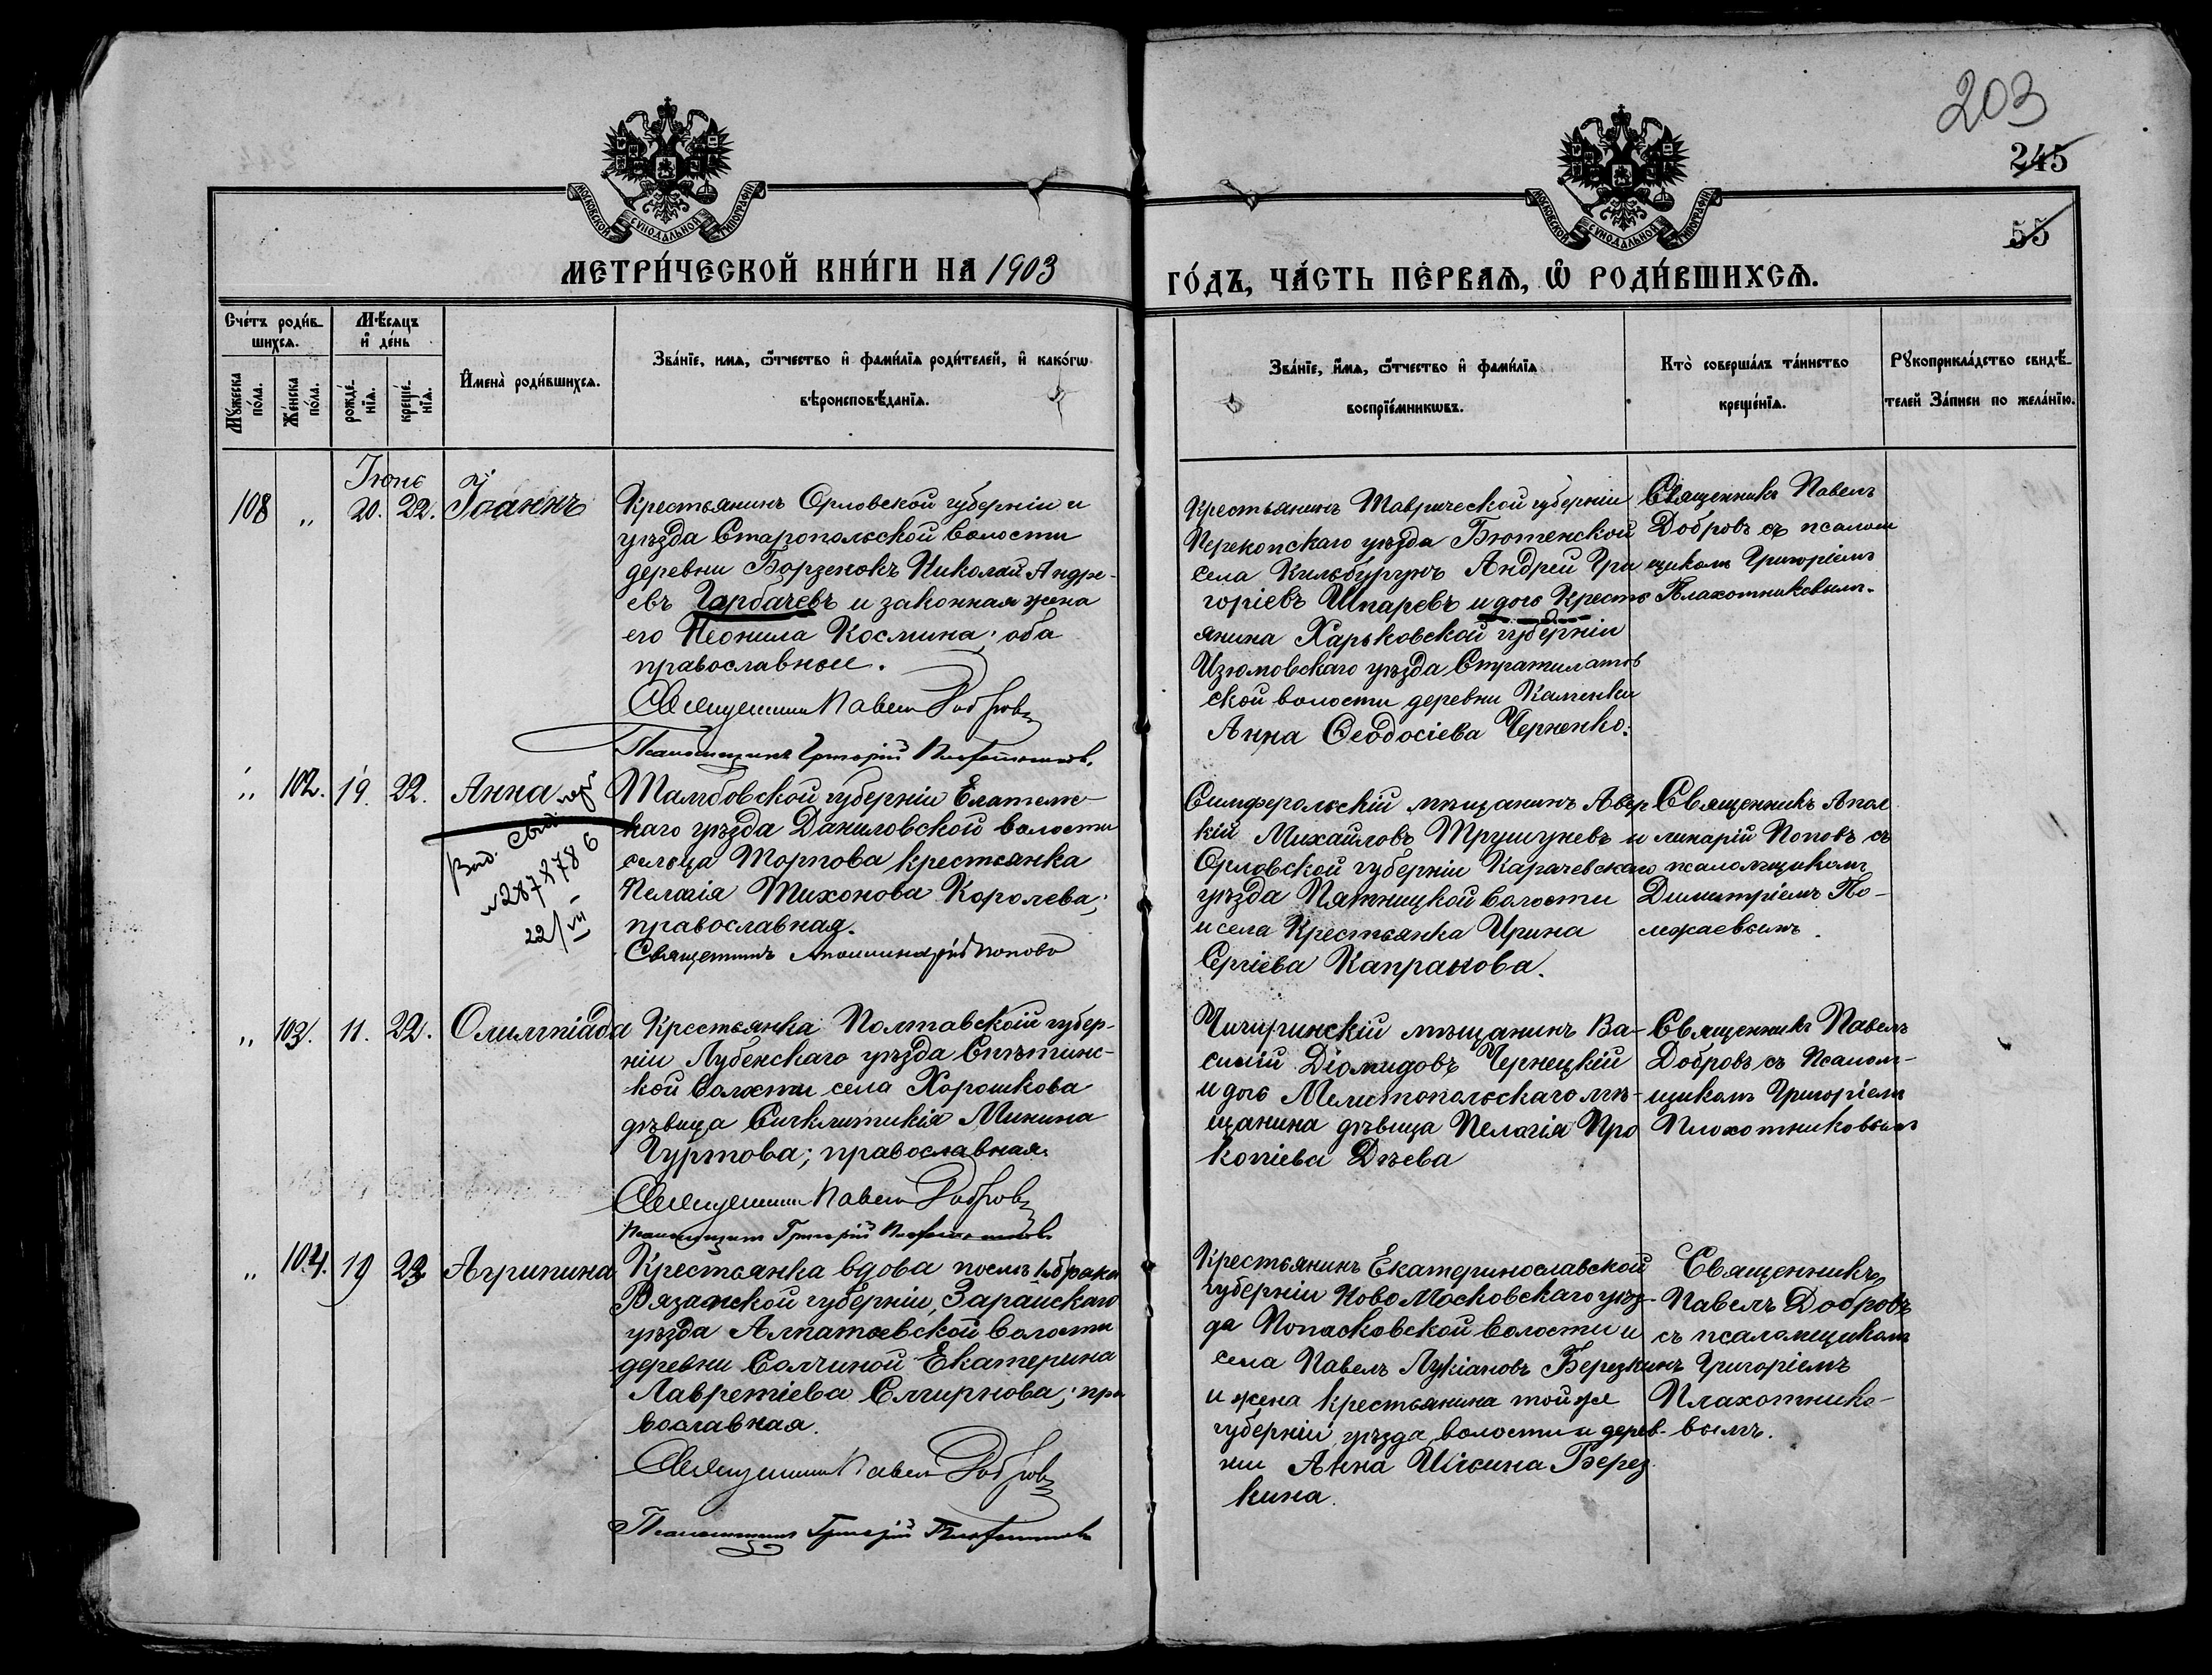 203
245
55
МОСКОВСКОЙ СѴНОДАЛЬНОЙ ТИПОГРАФІИ
МОСКОВСКОЙ СѴНОДАЛЬНОЙ ТИПОГРАФІИ
МЕТРИ́ЧЕСКОЙ КНИ́ГИ НА 1903
ГО́ДЪ, ЧА́СТЬ ПЕ́РВАЯ, Ѡ҆ РОДИ́ВШИХСЯ.
Сче́тъ роди́в-
шихся.
Мꙋ́жеска по́ла.
Же́нска по́ла.
Мѣ́сяцъ
и҆ де́нь
рожде́нїя.
креще́нїя.
И҆мена̀ роди́вшихся.
Зва́нїе, имя, ѻ҆́тчество и҆ фами́лїя роди́телей, и҆ како́гѡ
вѣроисповѣ́данїя.
Зва́нїе, и҆́мя, ѻ҆́тчество и҆ фами́лїя
воспрїе́мникѡвъ.
Кто̀ соверша́лъ та́инство
креще́нїя.
Рꙋкоприкла́дство свидѣ́-
телей За́писи по жела́нїю.
Іюнь
108 „ 20. 22. Іоаннъ
Крестьянинъ Орловской губерніи и
уѣзда Старопольской волости
деревни Борзенокъ Николай Андре-
евъ Гарбачевъ и законная жена
его Неонила Космина; оба
православные.
Священникъ Павелъ Добровъ
Псаломщикъ Григорій Плахотниковъ.
Крестьянинъ Таврической губерніи
Перекопскаго уѣзда Бютенской
села Кильбурунъ Андрей Гри
горіевъ Шпаревъ и дочь Кресть
янина Харьковской губерніи
Изюмовскаго уѣзда Стратилатов
ской волости деревни Каменки
Анна Ѳеодосіева Черненко.
Священникъ Павелъ
Добровъ съ псалом
щикомъ Григоріемъ
Плахотниковымъ.
„ 102. 19. 22. Анна
Выд. Свид.
22/VII
Тамбовской губерніи Елатьмс-
каго уѣзда Даниловской волости
сельца Торпова крестьянка
Пелагія Тихонова Королева;
православная.
Священникъ Аполлинарій Поповъ
Симферольскій мѣщанинъ Авер
кій Михайловъ Трушуневъ и
Орловской губерніи Карачевскаго
уѣзда Пятницкой волости
и села Крестьянка Ирина
Сергіева Капранова.
Священникъ Апол
линарій Поповъ съ
псаломщикомъ
Димитріемъ По-
„ 103. 11. 22. Олимпіада
Крестьянка Полтавской губер-
ніи Лубенскаго уѣзда Снѣтинс-
кой волости села Хорошкова
дѣвица Синклитикія Минина
Гуртова; православная.
Священникъ Павелъ Добровъ
Псаломщикъ Григорій Плахотниковъ
Чигиринскій мѣщанинъ Ва-
силій Діомидовъ Чернецкій
и дочь Мелитопольскаго мѣ-
щанина дѣвица Пелагія Про
копіева Дѣева
Священникъ Павелъ
Добровъ съ Псалом-
щикомъ Григоріемъ
Плохотниковымъ
„ 104. 19 23 Агрипина
Крестьянка вдова послѣ 1го брака
Рязанской губерніи, Зарайскаго
уѣзда Алпатьевской волости
деревни Солчиной Екатерина
Лавретіева Смирнова; пра
вославная.
Священникъ Павелъ Добровъ
Псаломщикъ Григорій Плахотниковъ
Крестьянинъ Екатеринославской
губерніи Ново Московскаго уѣз-
да Попасковской волости и
села Павелъ Лукіановъ Березкинъ
и жена крестьянина той же
губерніи уѣзда волости и дерев-
ни Анна Ильина Берез
кина.
Священникъ
Павелъ Добровъ
съ псаломщикомъ
Григоріемъ
Плахотнико-
вымъ.